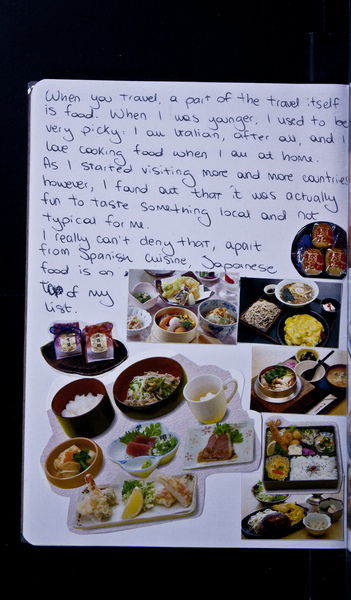 When you travel, a part of the travel itself
is food. When I was younger, I used to be
very picky: I am Italian, after all, and I
love cooking food when I am at home.
As I started visiting more and more countries
however, I found out that it was actually
fun to taste something local and not
typical for me.
I really can't deny that, apart
from Spanish cuisine, Japanese
food is on
top of my
list.